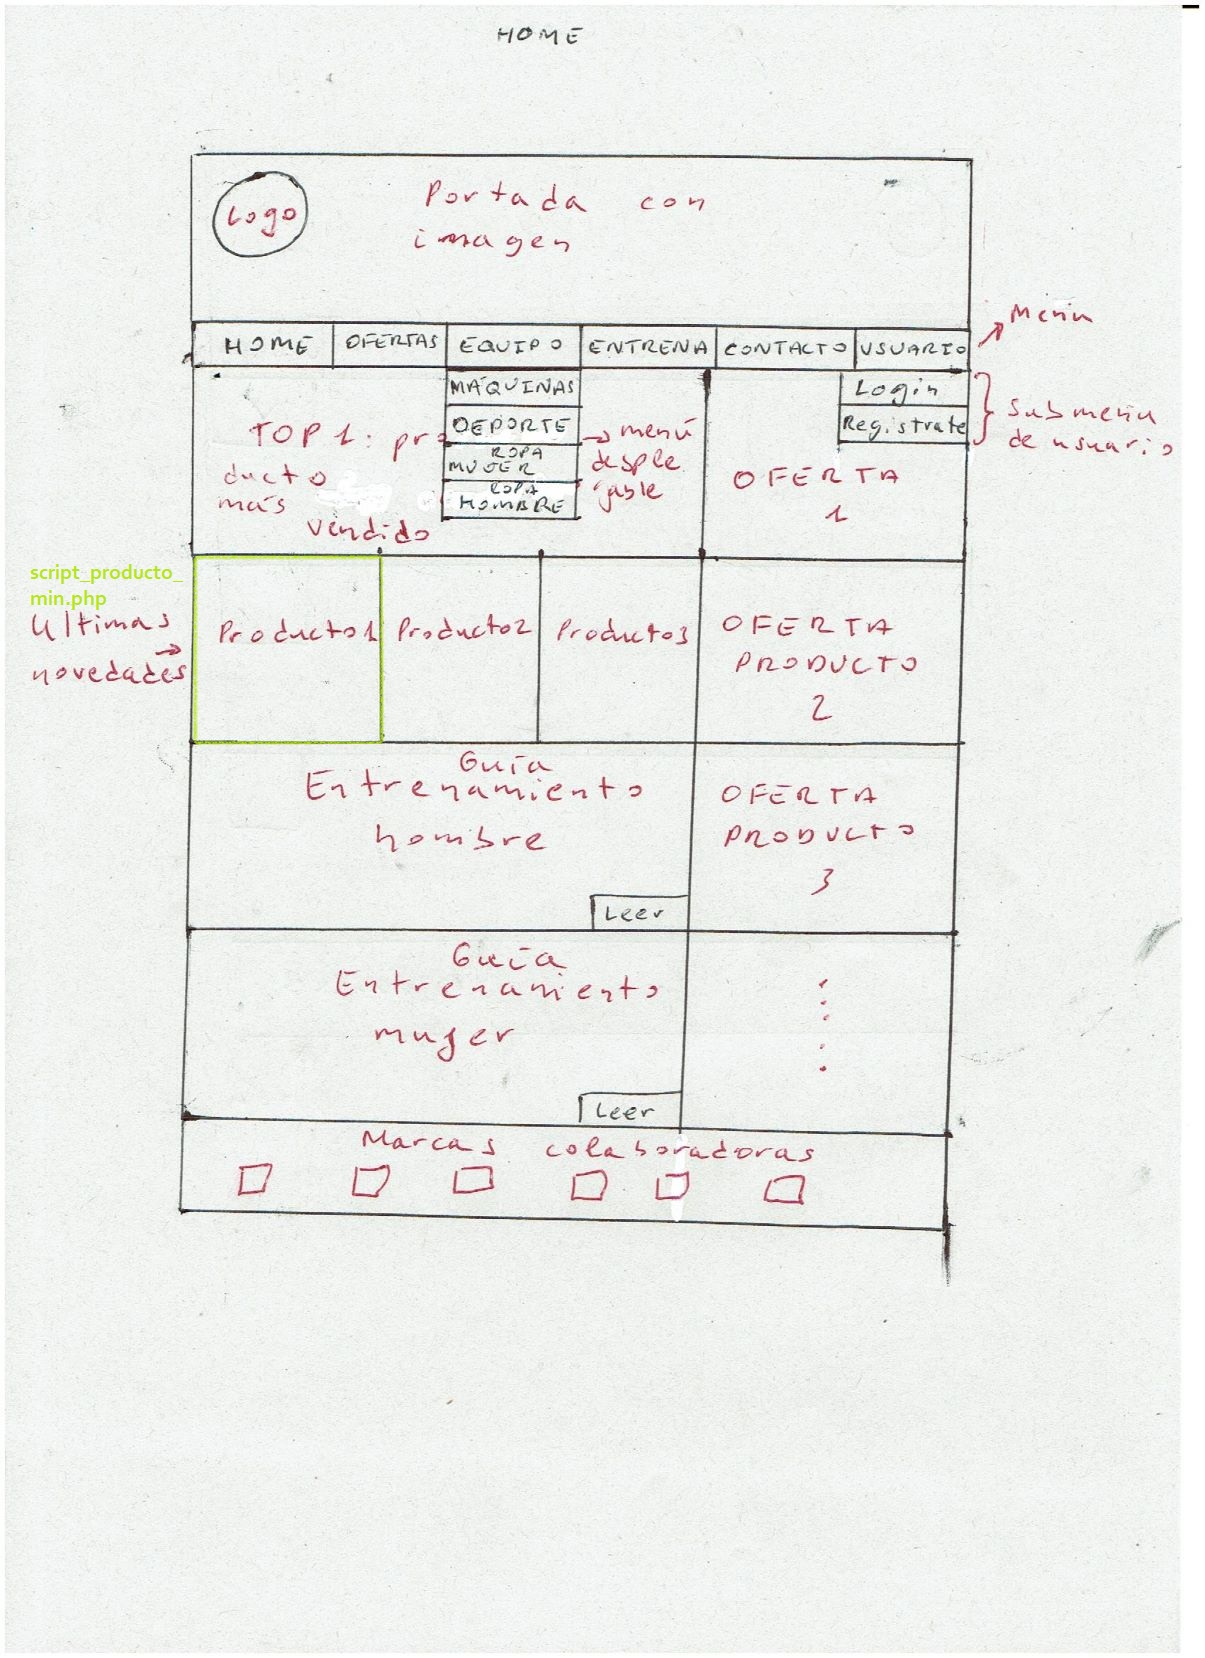 HOME
Logo
Portada con
imagen
Menú
HOME
OFERTAS
EQUIPO
ENTRENA
CONTACTO
USUARIO
MÁQUINAS
DEPORTE
ROPA
MUJER
ROPA
HOMBRE
Login
Registrate
Submenú
de usuario
menú
desple
gable
TOP 1: pro
ducto
más
vendido
OFERTA
1
script_producto_
min.php
Ultimas
novedades
Producto1
Producto2
Producto3
OFERTA
PRODUCTO
2
Guía
Entrenamiento
hombre
Leer
OFERTA
PRODUCTO
3
Guía
Entrenamiento
mujer
Leer
Marcas colaboradoras